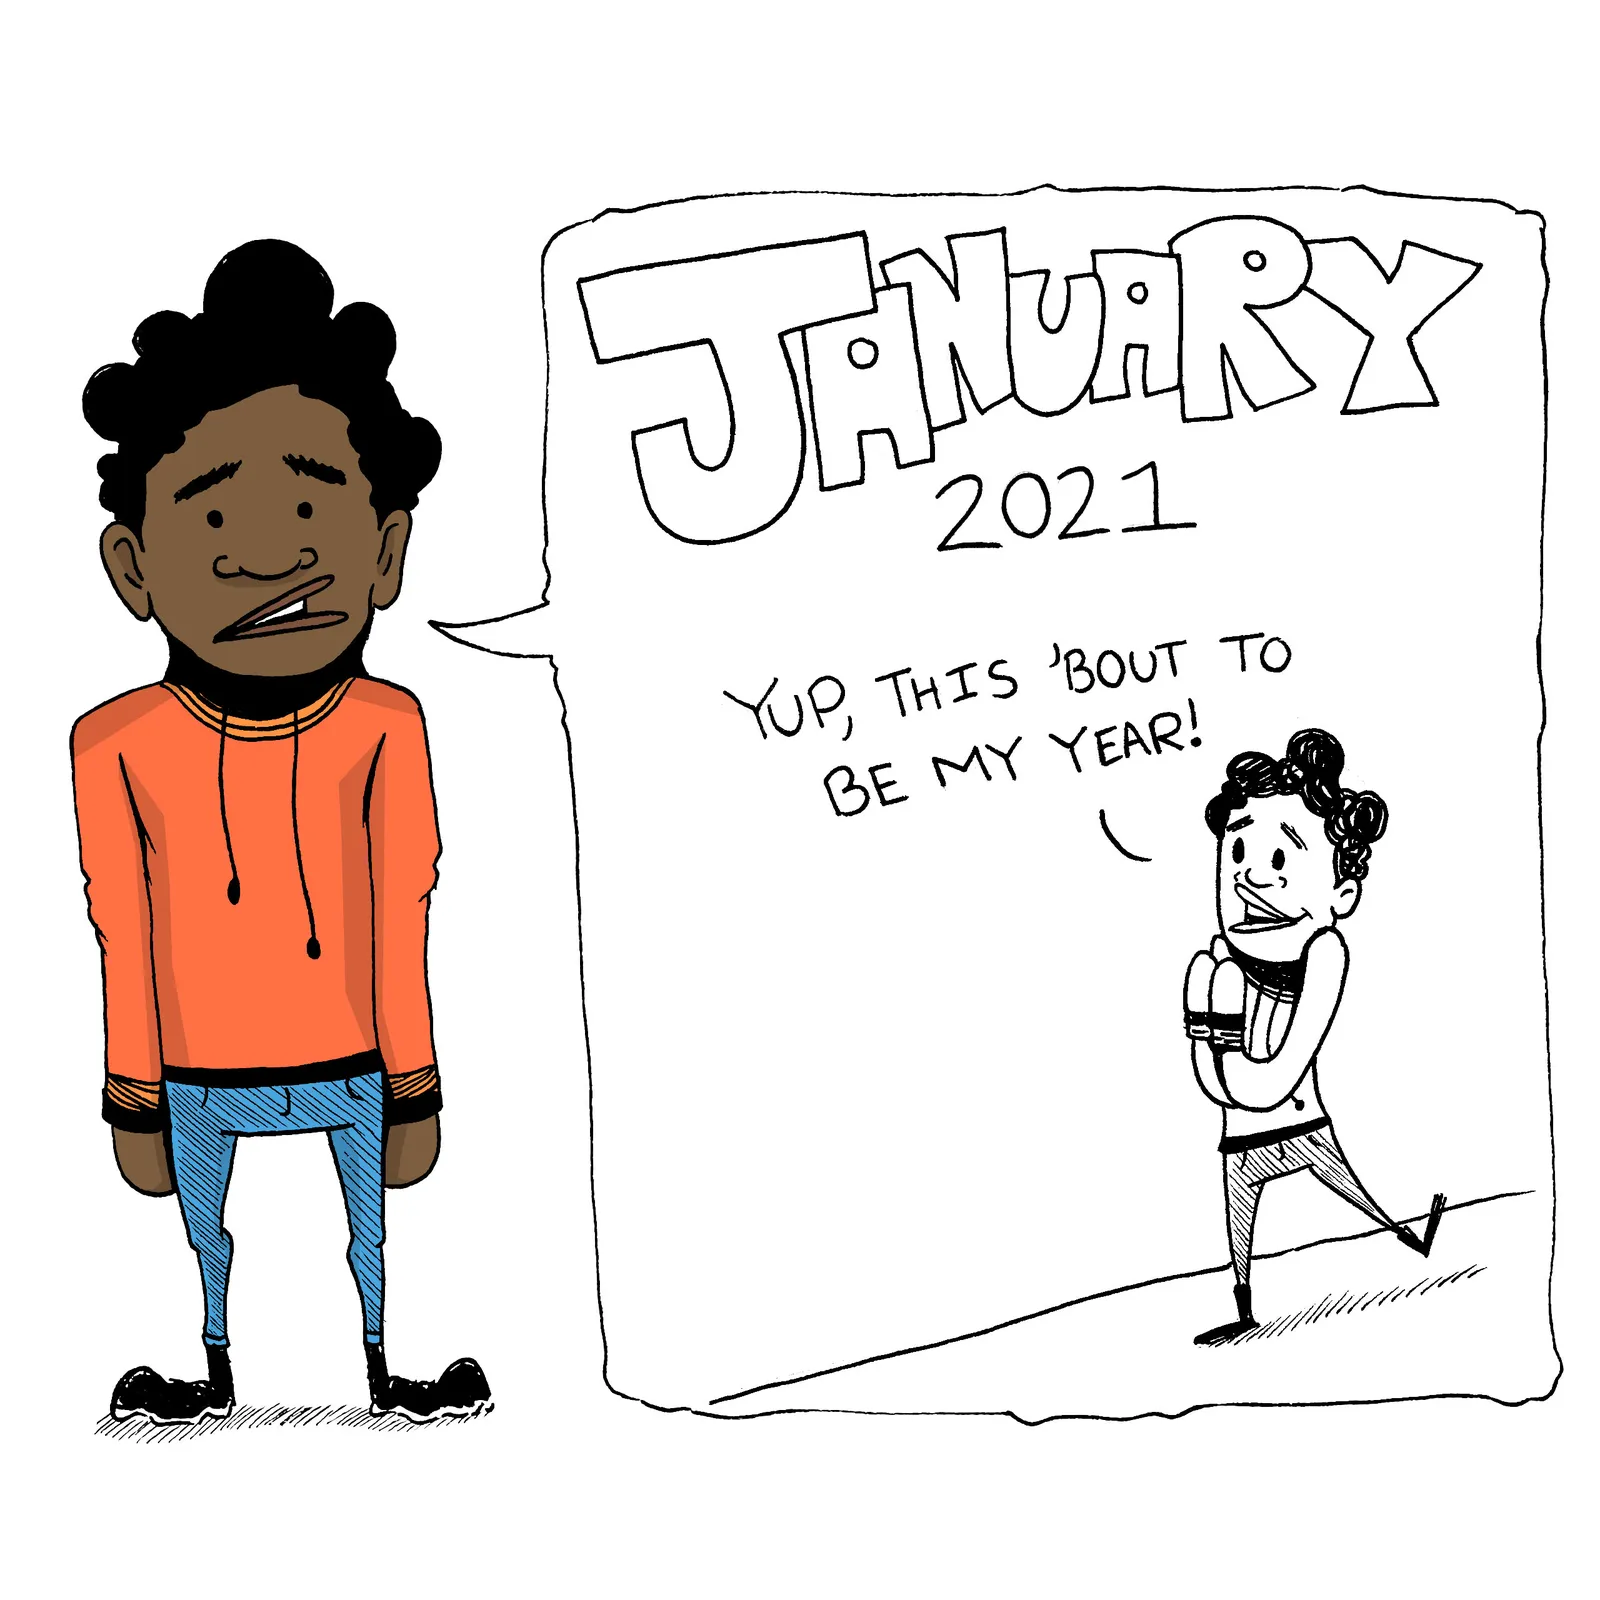 JANUARY
2021
YUP, THIS 'BOUT TO
BE MY YEAR!